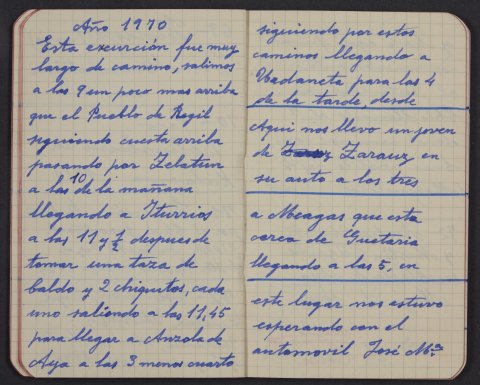 Año 1970
Esta excursión fue muy
largo de camino, salimos
a las 9 un poco mas arriba
que el Pueblo de Regil
siguiendo cuesta arriba
pasando por Zelatun
a las 10 de la mañana
llegando a Iturrios
a las 11 y 1/2 despues de
tomar una taza de
caldo y 2 chiquitos, cada
uno saliendo a las 11,45
para llegar a Anzola de
Aya a las 3 menos cuarto
siguiendo por estos
caminos llegando a
Urdaneta, para las 4
de la tarde, desde
Aqui nos llevo un joven
de Zarauz en
su auto a los tres
a Meagas que esta
cerca de Guetaria
llegando a las 5, en
este lugar nos estuvo
esperando con el
automovil José Mª